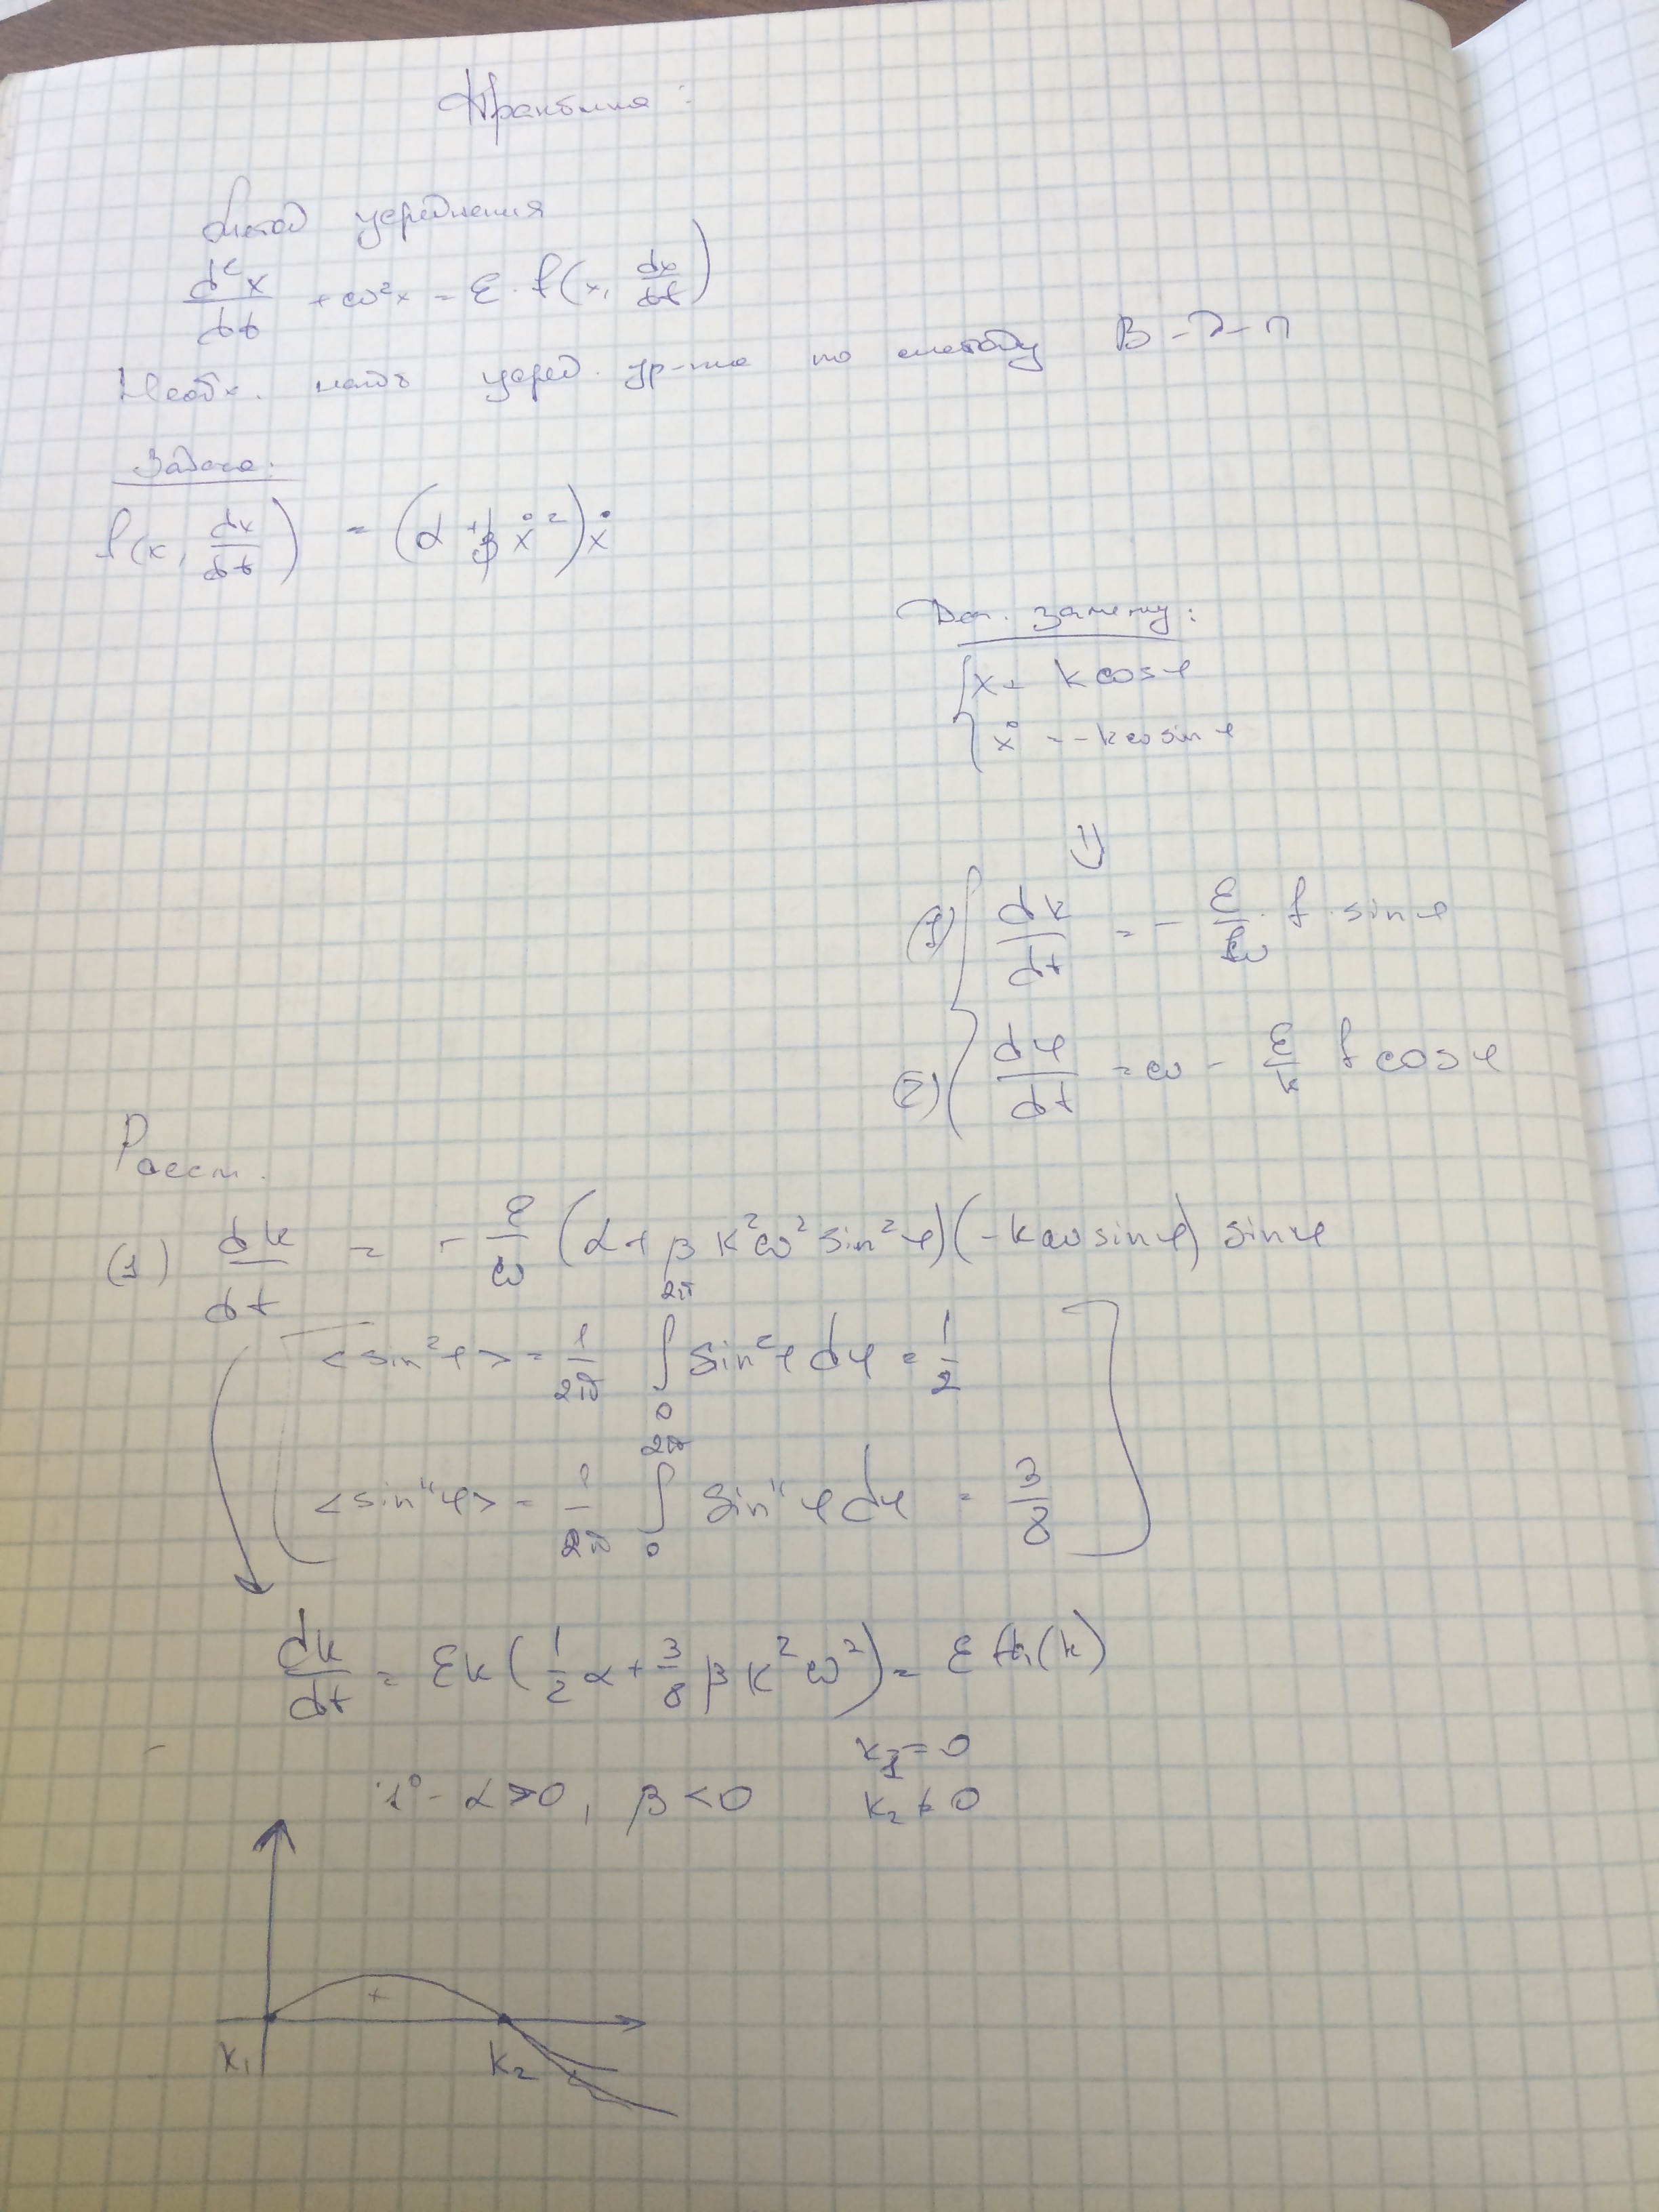 Практика:
Метод усреднения
d²x/dt + ω²x = ε · f(x, dx/dt)
Необх. найти усред. ур-ние по методу В-Д-П
Задача:
f(x, dx/dt) = (α + β ẋ²)ẋ
Доп. замену:
{ x = k cos φ
ẋ = -kω sin φ
⇓
(1) { dk/dt = - ε/ω · f · sin φ
(2) dφ/dt = ω - ε/k f cos φ
Рассм.
(1) dk/dt = - ε/ω (α + β k²ω² sin²φ)(-kω sin φ) sin φ
<sin²φ> = 1/2π ∫₀^2π sin²φ dφ = 1/2
<sin⁴φ> = 1/2π ∫₀^2π sin⁴φ dφ = 3/8
dk/dt = εk(1/2 α + 3/8 β k² ω²) = ε (k)
k₁ = 0
1° - α > 0, β < 0 k₂ ≠ 0
+
k₁ k₂